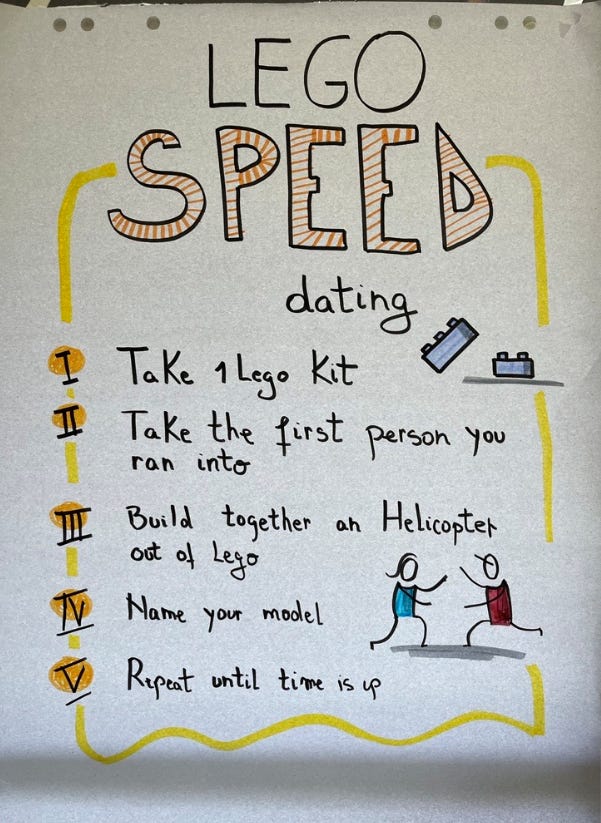 LEGO
SPEED
dating
I Take 1 Lego Kit
II Take the first person you
ran into
III Build together an Helicopter
out of Lego
IV Name your model
V Repeat until time is up